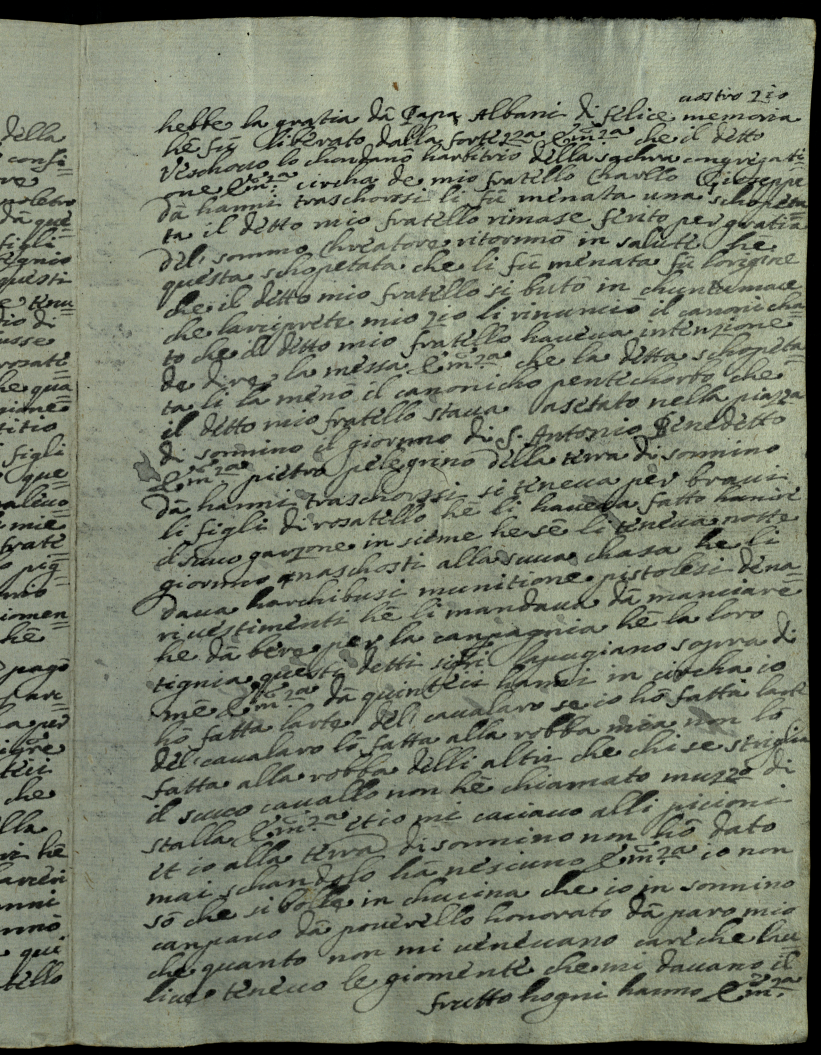 della
consi=
re
dà que=
figli
questi
e tenu=
dio di
usse
rosate=
he qua=
gione
titio
i figli
que=
e mie
frate=
o pig=
iomen=
hè
pagò
par=
a per
teii
che
lla
anni
qui
tello
nostro zio
hebbe la gratia dà Papa Albani di felice memoria
hè fù liberato dalla fortezza Em:za che il detto
veschovo lo chondanò harbitrio della sachra congregati=
one Em:za circha de mio fratello Charllo Giuseppe
dà hanni traschorsi li fù menata una schopeta=
ta il detto mio fratello rimase ferito per gratia
del sommo Chreatore ritornnò in salute he
questa schopetata che li fù menata fù lorigine
che il detto mio fratello si butò in chuntumace
che larciprete mio zio li rinunciò il canonicha=
to che il detto mio fratello haveva intenzione
de dire la messa Em:za che la detta schopeta=
ta li la menò il canonicho pentechorbo che
il detto mio fratello stava asetato nella piazza
di sonnino il giornno di S. Antonio Benedetto
Em:za pietro pelegrino della terra di sonnino
dà hanni traschorsi si teneva per bravi
li figli di rosatello hè li haveva fatto hunire
il suuo garzone in sieme he sè li teneva notte
giornno naschosti alla suua chasa he li
dava harchibusi munitione pistolesi dena=
ri vestimenti hè li mandava dà manciare
he dà bere per la canpagnia hè la loro
tignia questi detti si fri lapugiano sopra di
mè Em:za dà quinteii hanni in circha io
hò fatta larte del cavalaro se io hò fatta larte
del cavalaro lò fatta alla robba mia non lò
fatta alla robba delli altri che chi se striglia
il suuo cavallo non hè chiamato muzzo di
stalla Em:za et io mi caciavo alli picioni
et io alla terra di sonnino non hò dato
mai schandolo hà nesciuno Em:za io non
sò che si bolle in chucina che io in sonnino
canpavo dà poverello honorato dà paro mio
che quanto non mi venevano careche
live tenevo le giomente che mi davano il
frutto hogni hanno Em:za